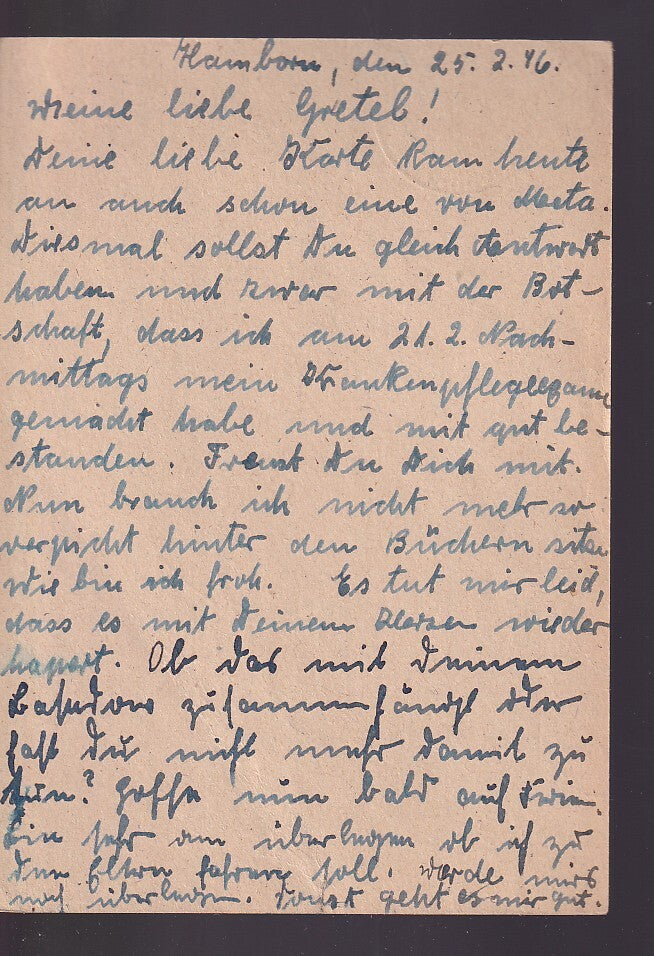 Hamborn, den 25. 2. 46.
Meine liebe Gretel!
Deine liebe Karte kam heute
an auch schon eine von Meta.
Diesmal sollst Du gleich Antwort
haben und zwar mit der Bot-
schaft, dass ich am 21. 2. Nach-
mittags mein Krankenpflegeexamen
gemacht habe und mit gut be-
standen. Freust Du Dich mit.
Nun brauch ich nicht mehr so
verpicht hinter den Büchern sitzen
wie bin ich froh. Es tut mir leid,
dass es mit Deinem Herzen wieder
hapert. Ob das mit Deinem
Basedow zusammenhängt oder
hast Du nicht mehr damit zu
tun? Hoffe nun bald auf
Bin sehr am überlegen ob ich zu
den Eltern fahren soll. werde mirs
noch überlegen. sonst geht es mir gut.